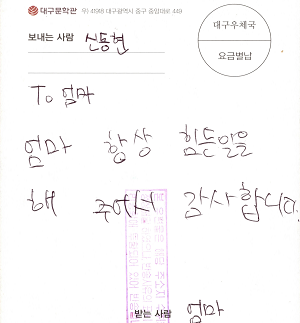 대구문학관 우) 41918 대구광역시 중구 중앙대로 449
보내는 사람 신동현
대구우체국
요금별납
To 엄마
엄마 항상 힘든일을
해 주어서 감사합니다.
받는 사람 엄마